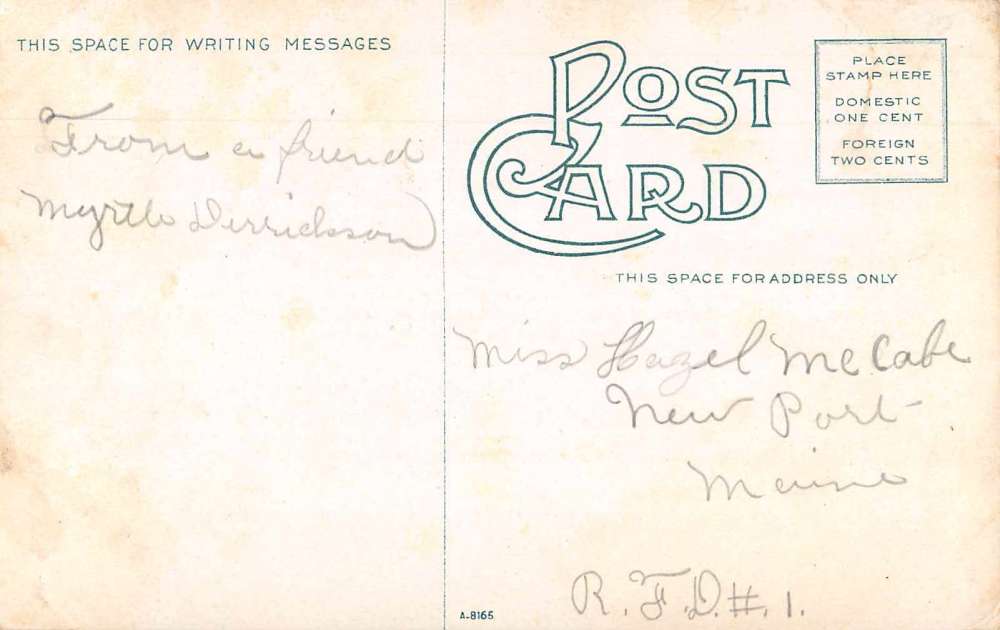 THIS SPACE FOR WRITING MESSAGES
From a friend
Myrtle Derrickson
POST
CARD
PLACE
STAMP HERE
DOMESTIC
ONE CENT
FOREIGN
TWO CENTS
THIS SPACE FOR ADDRESS ONLY
Miss Hazel McCabe
New Port
Maine
R.F.D.#.1.
A-8165